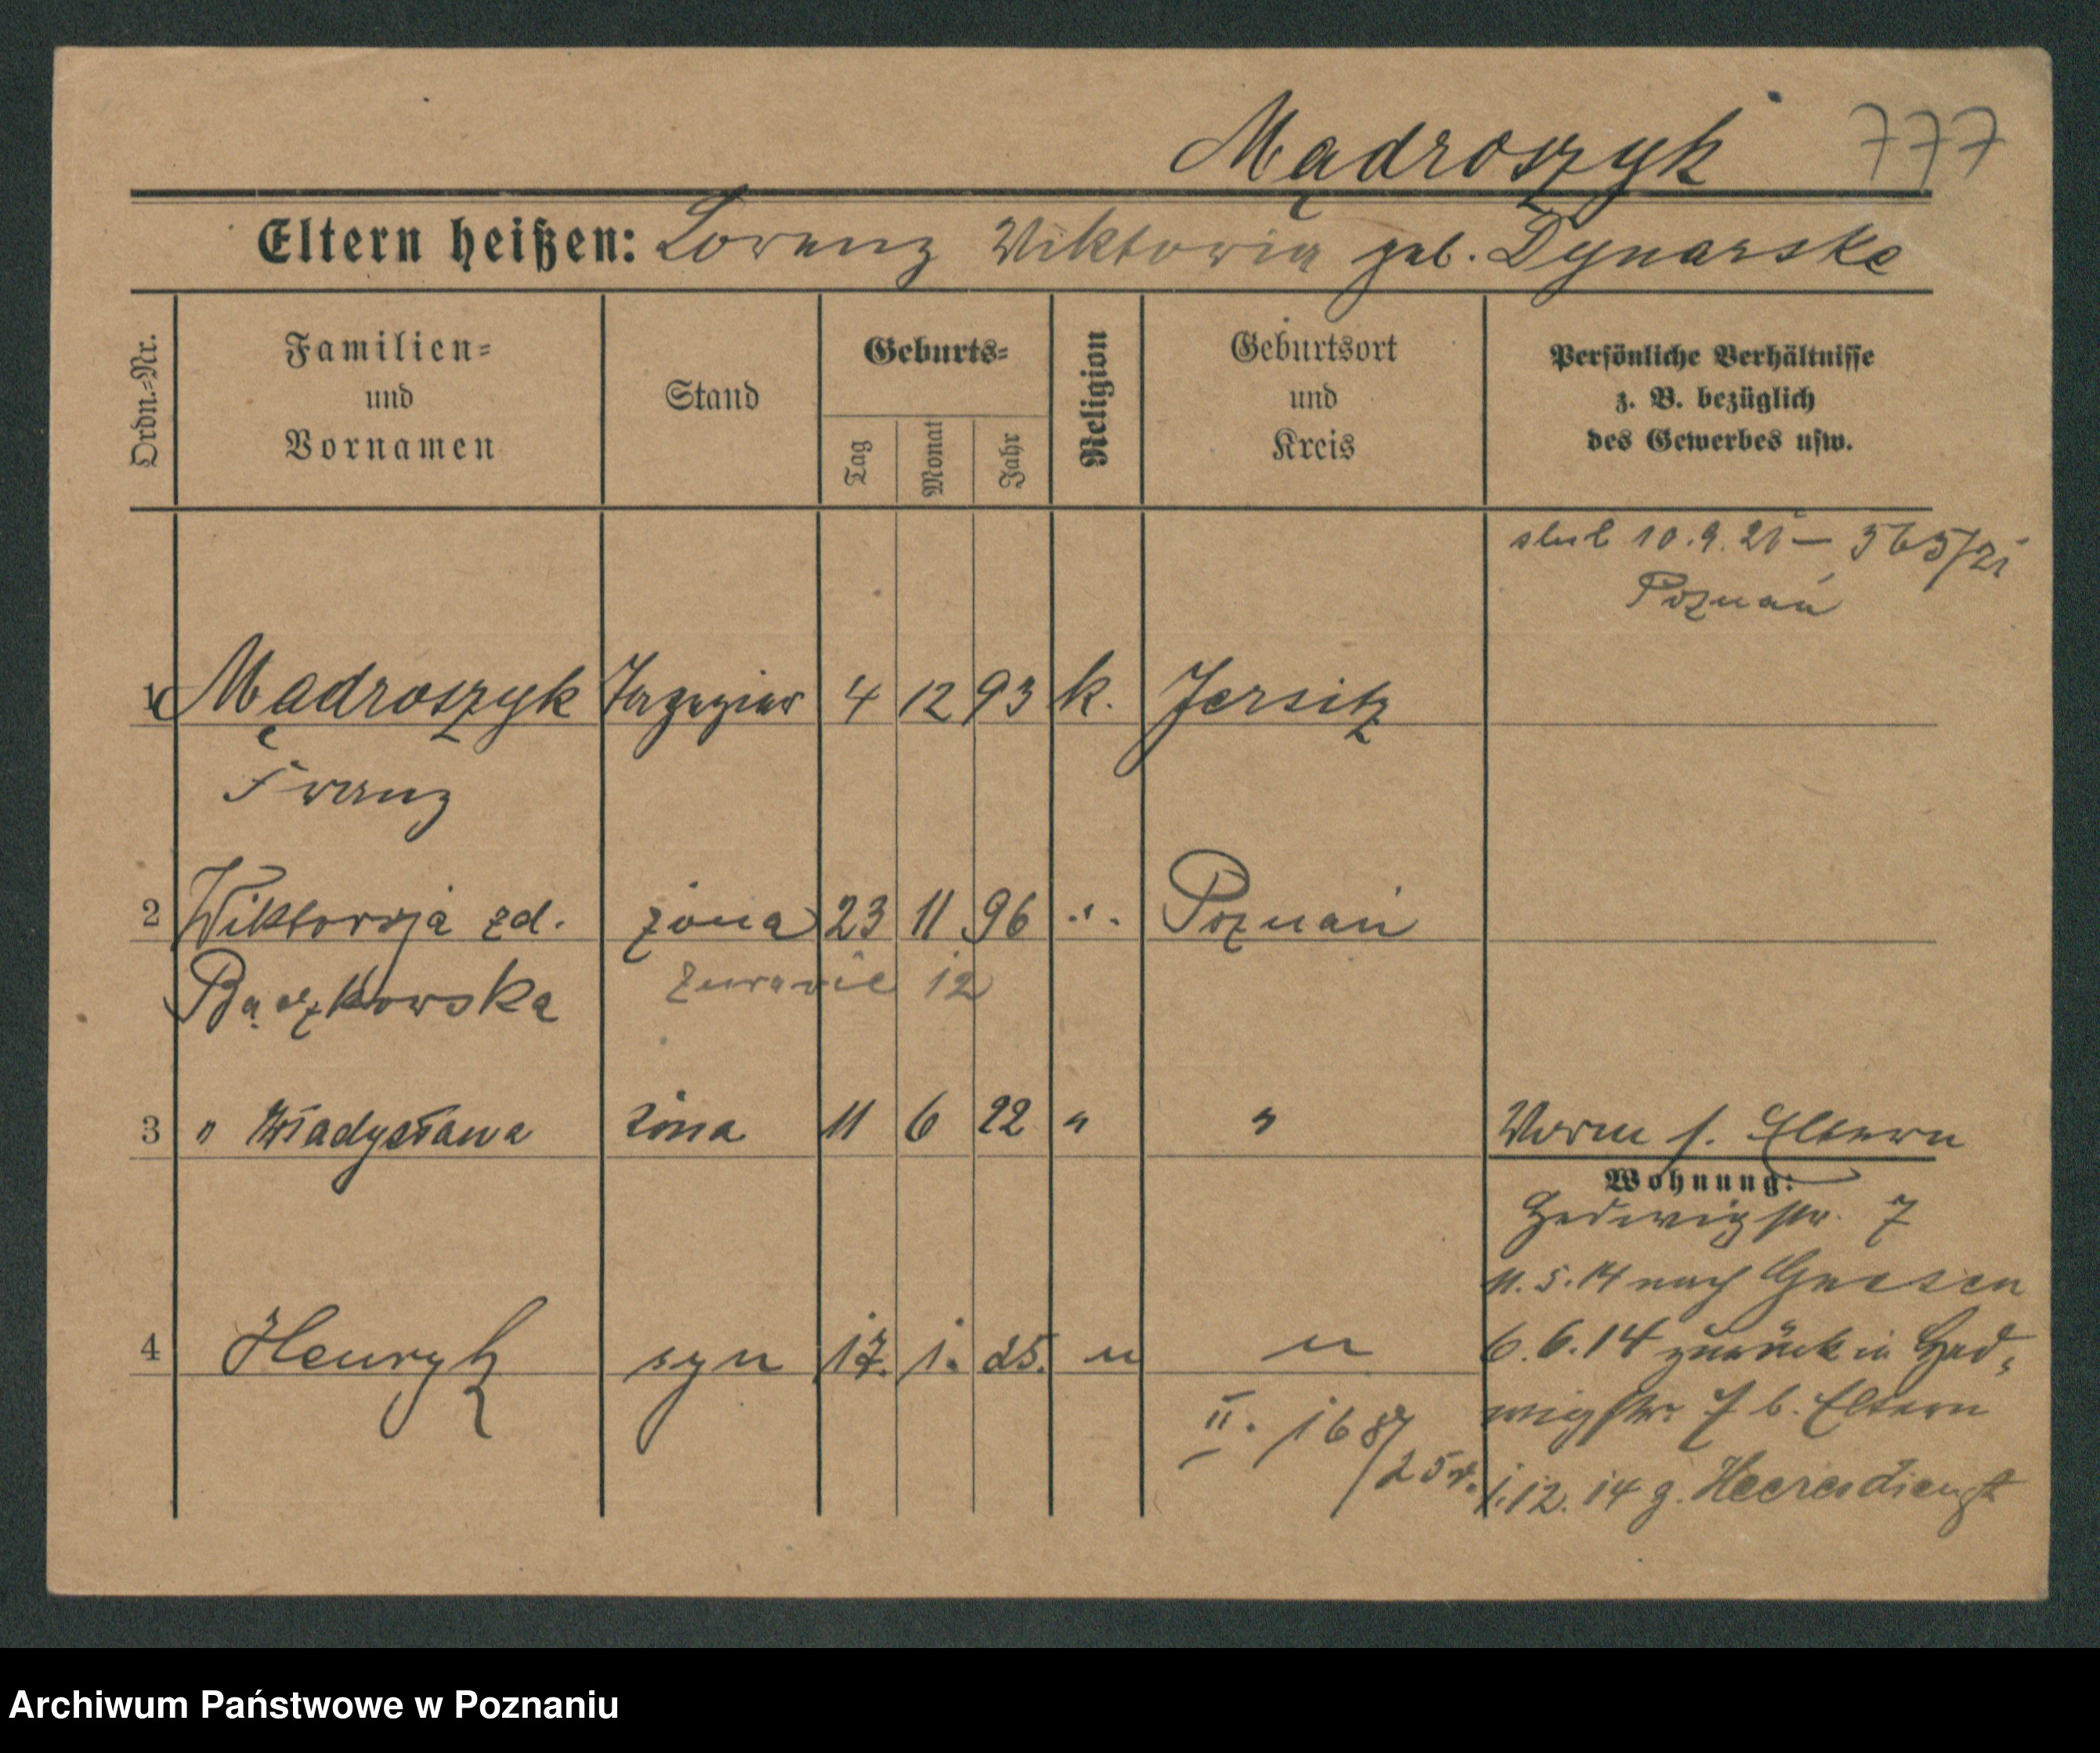 Mądroszyk 777
Eltern heißen: Lorenz Viktoria geb. Dynarska
Ordn.-Nr.
Familien-
und
Vornamen
Stand
Geburts-
Tag
Monat
Jahr
Religion
Geburtsort
und
Kreis
Persönliche Verhältnisse
z. B. bezüglich
des Gewerbes usw.
ślub 10.9.21 — 565/21
Poznań
1 Mądroszyk Tapezierer 4 12 93 k. Jersitz
Franz
2 Wiktorja zd. żona 23 11 96 .". Poznań
Bączkowska
12
3 " Władysława 11 6 22 " "
Eltern
Wohnung:
Hedwigstr. 7
11.5.14 nach Gnesen
4 Henryk syn 17. 1. 25. " "
6.6.14 zurück in Hed-
wigstr. 7 b. Eltern
II. 1687/25r.
1.12.14 z. Heeresdienst
Archiwum Państwowe w Poznaniu